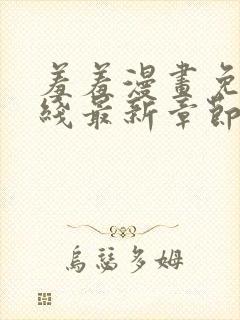 羞羞漫畫免
綫最新章節
烏瑟多姆